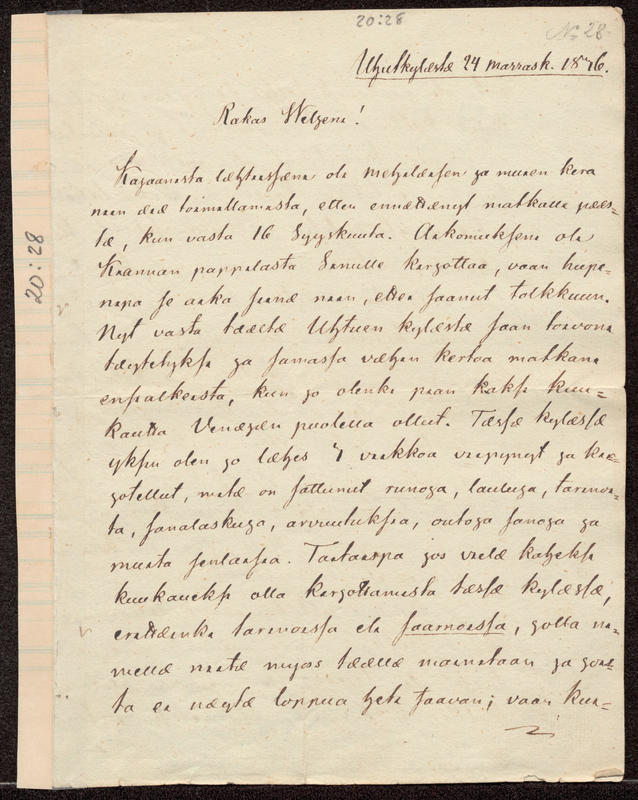 20:28
No 28.
Uhtutkylæstæ 24 marrask. 1876.
Rakas Welzeni!
Kajaanista læhtiissæni oli metzælæisen ja muun kera
niin æiæ toimittamista, etten ennættænyt matkalle pææs-
tæ, kun vasta 16 Syyskuuta. Aikomukseni oli
Kiannan pappilasta Sinulle kirjottaa, vaan hupe-
nipa se aika siinæ niin, etten saanut tolkkuun.
Nyt vasta tææltæ Uhtuen kylæstæ saan toivoni
tæytetyksi ja samassa væhæn kertoa matkani
ensialkeista, kun jo olenki pian kaksi kuu-
kautta Venæjæn puolella ollut. Tæssæ kylæssæ
yksin olen jo læhes 7 viikkoa viipynyt ja kir-
jotellut, mitæ on sattunut runoja, lauluja, tarinoi-
ta, sanalaskuja, arvuutuksia, outoja sanoja ja
muuta senlaista. Taitaispa jos vielæ kaheksi
kuukaueksi olla kirjottamista tæssæ kylæssæ,
erittæinki tarinoissa eli saarnoissa, jolla ni-
mellæ niitæ myös tæællæ mainitaan ja jois-
ta ei næytæ loppua heti saavan; vaan kuu-
20:28